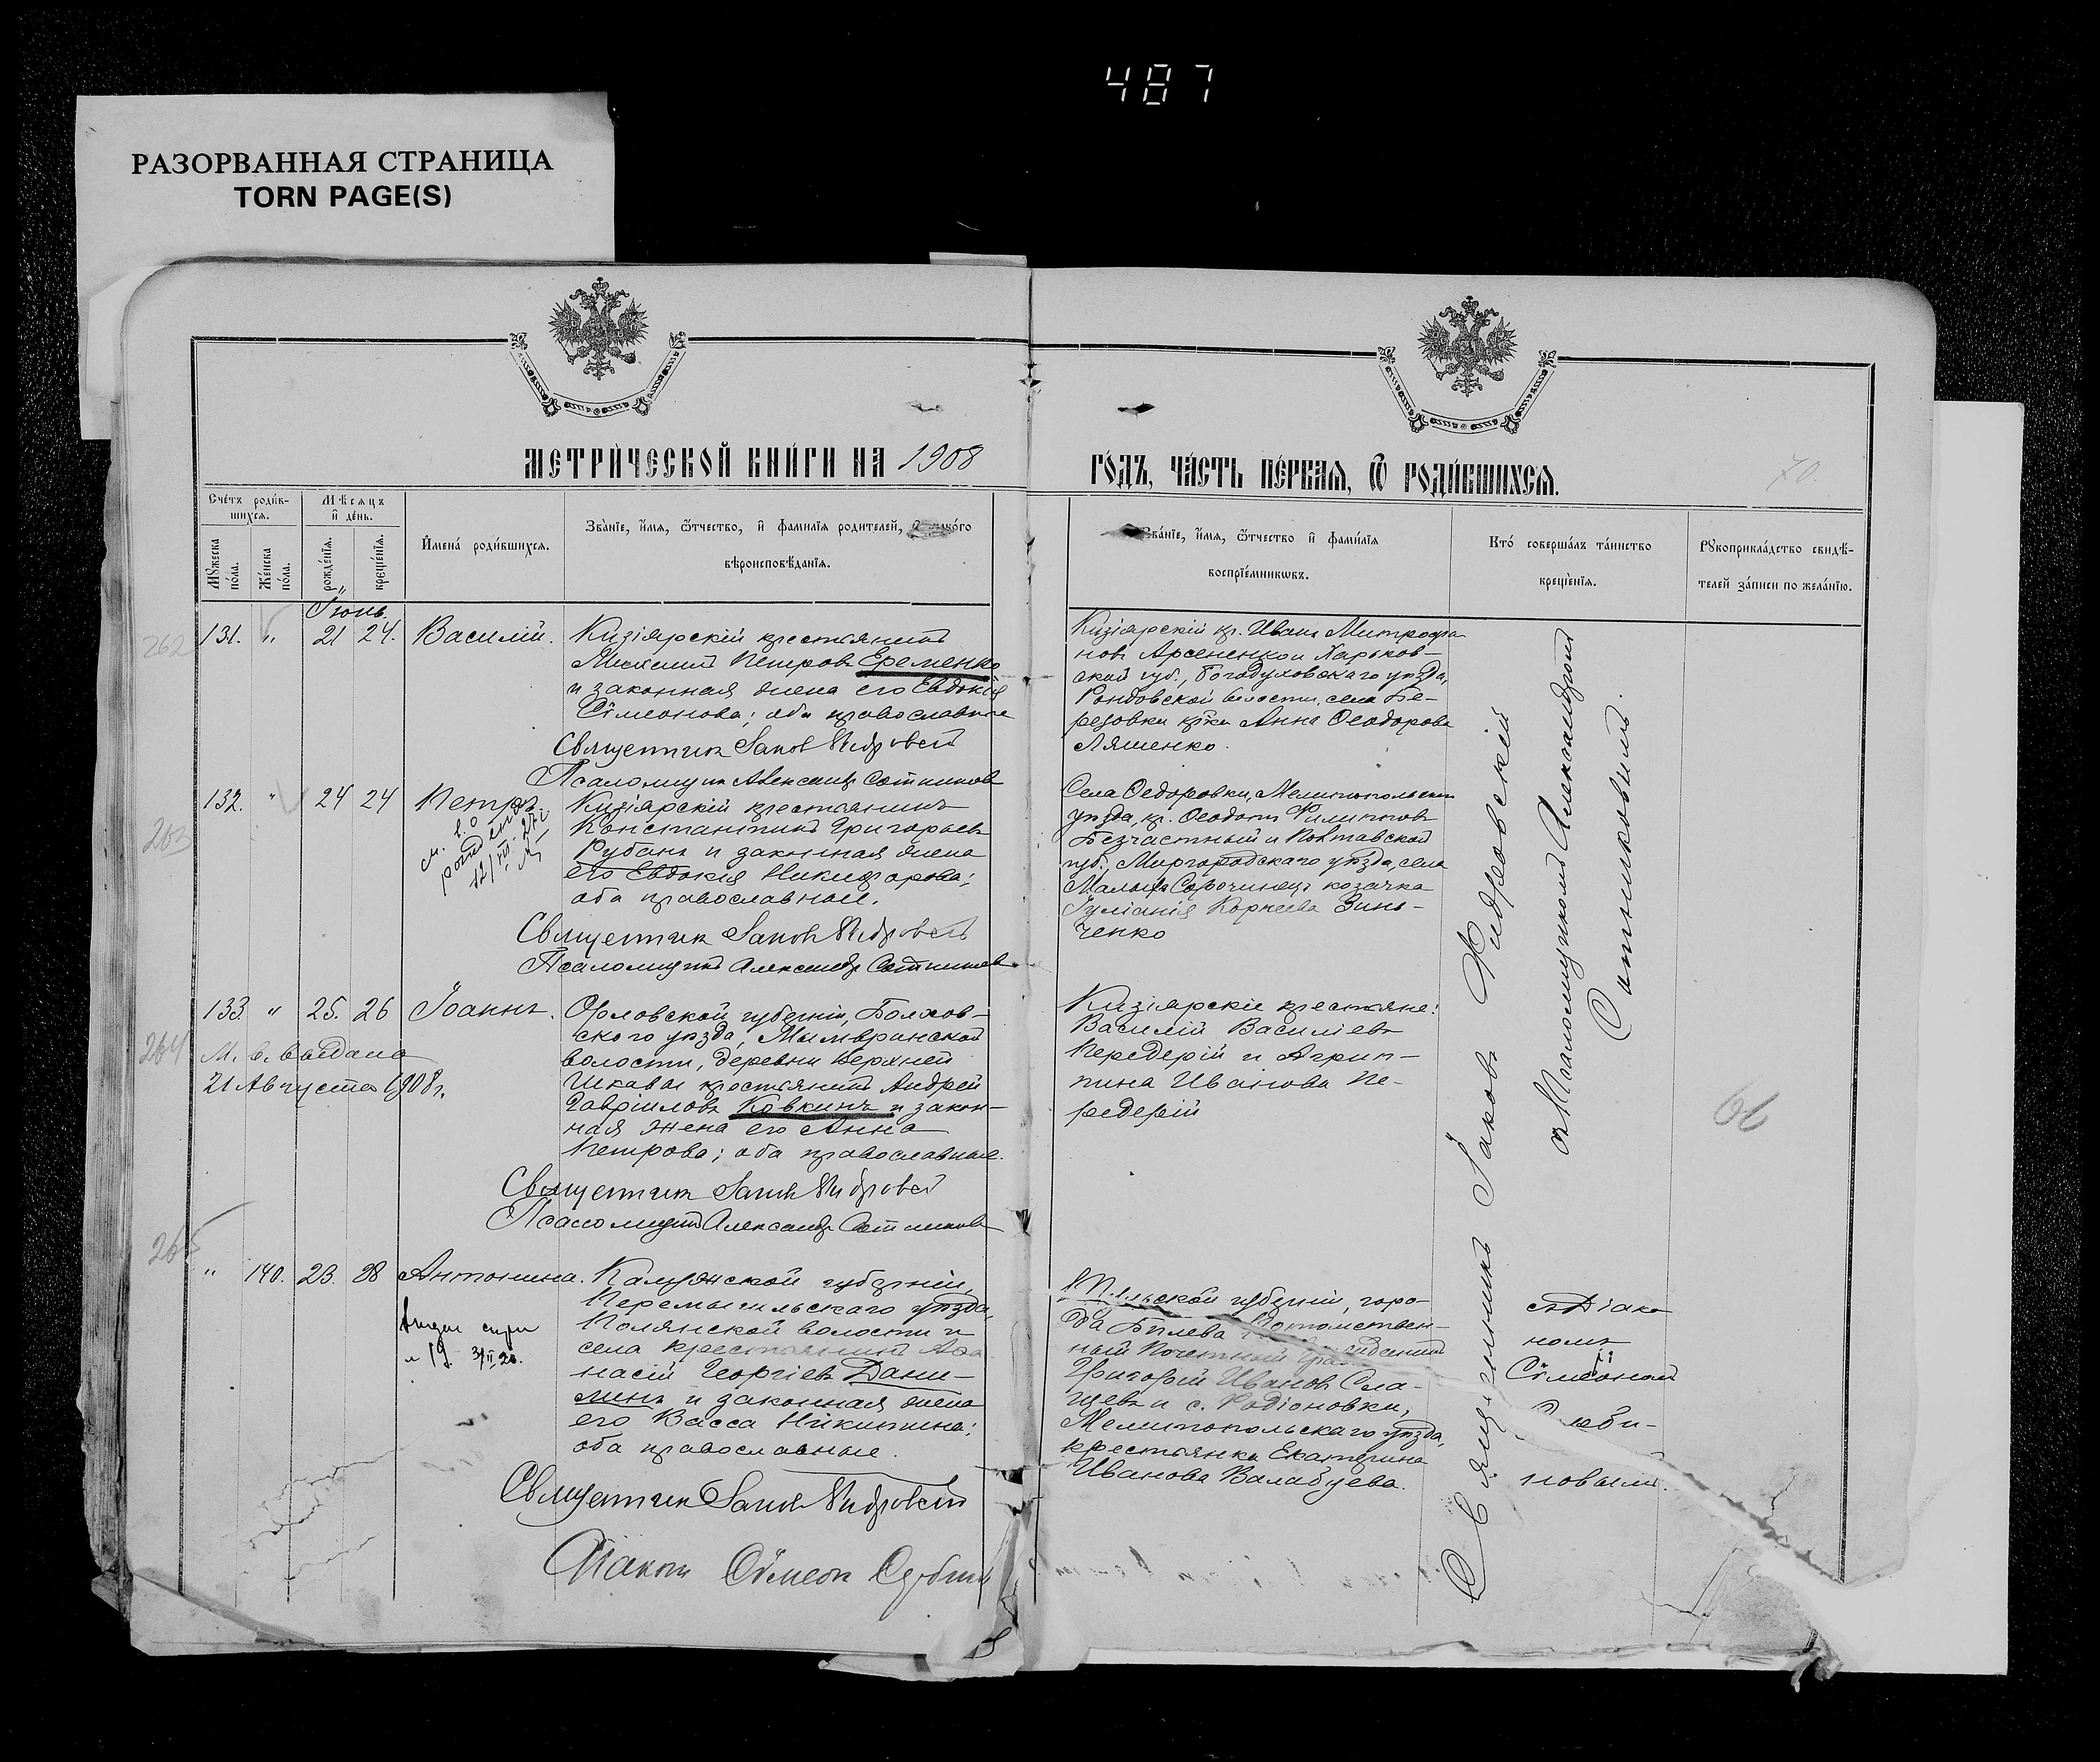 487
РАЗОРВАННАЯ СТРАНИЦА
TORN PAGE(S)
МЕТРИЧЕСКОЙ КНИГИ НА 1908
ГОДЪ, ЧАСТЬ ПЕРВАЯ, Ѿ РОДИВШИХСЯ.
70.
Счетъ родив-
шихся.
Мѣсяцъ
и день.
Мужеска
пола.
Женска
пола.
рожденія.
крещенія.
Имена родившихся.
Званіе, имя, ѿтчество, и фамилія родителей,
вѣроисповѣданія.
Званіе, имя, ѿтчество и фамилія
воспріемниковъ.
Кто совершалъ таинство
крещенія.
Рукоприкладство свидѣ-
телей записи по желанію.
Іюнь.
262
131. " 21 24. Василій.
Кизіярскій крестьянинъ
Михаилъ Петровъ Еременко
и законная жена его Евдокія
Сѷмеонова; оба православные
Священникъ Іаковъ
Псаломщикъ Александръ Сотниковъ
Кизіярскій кр. Иванъ Митрофа-
новъ Арсененко и Харьков-
ской губ., Богодуховскаго уѣзда,
волости, села Бе-
резовки кр-ка Анна Ѳеодорова
Ляшенко.
263
132. " 24 24 Петръ.
Кизіярскій крестьянинъ
Константинъ Григорьевъ
Рубанъ и законная жена
его Евдокія Никифорова;
оба православные.
Священникъ Іаковъ
Псаломщикъ Александръ Сотниковъ
Села Ѳедоровки, Мелитопольскаго
уѣзда, кр. Ѳеодотъ Филипповъ
Безчастный и Полтавской
губ., Миргородскаго уѣзда, села
Малыхъ Сорочинецъ козачка
Іуліанія Корнеева Зинь-
ченко
264
133. " 25. 26 Іоаннъ.
М. в. выдана
21 Августа 1908 г.
Орловской губерніи, Болхов-
ского уѣзда,
волости, деревни Верхней
крестьянинъ Андрей
Гавріиловъ Ковкинъ и закон-
ная жена его Анна
Петрова; оба православные.
Священникъ Іаковъ
Псаломщикъ Александръ Сотниковъ
Кизіярскіе крестьяне:
Василій Василіевъ
Передерій и Агрип-
пина Иванова Пе-
редерій
265
" 140. 23. 28 Антонина.
Калужской губерніи,
Перемышльскаго уѣзда,
Полянской волости и
села крестьянинъ Аѳа-
насій Георгіевъ Дани-
линъ и законная жена
его Васса Никитина;
оба православные.
Священникъ Іаковъ
Діаконъ Сѷмеонъ
губерніи, горо-
да Бѣлева Потомствен-
ный Почетный
Григорій Ивановъ Сла-
щевъ и с. Родіоновки,
Мелитопольскаго уѣзда,
крестьянка Екатерина
Иванова
Священникъ Іаковъ
съ Псаломщикомъ Александромъ
Сотниковымъ.
съ Діако-
номъ
Сѷмеономъ
новымъ.